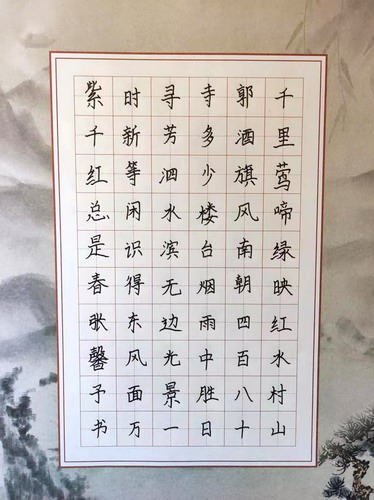 千里莺啼绿映红水村山
郭酒旗风南朝四百八十
寺多少楼台烟雨中胜日
寻芳泗水滨无边光景一
时新等闲识得东风面万
紫千红总是春张馨予书